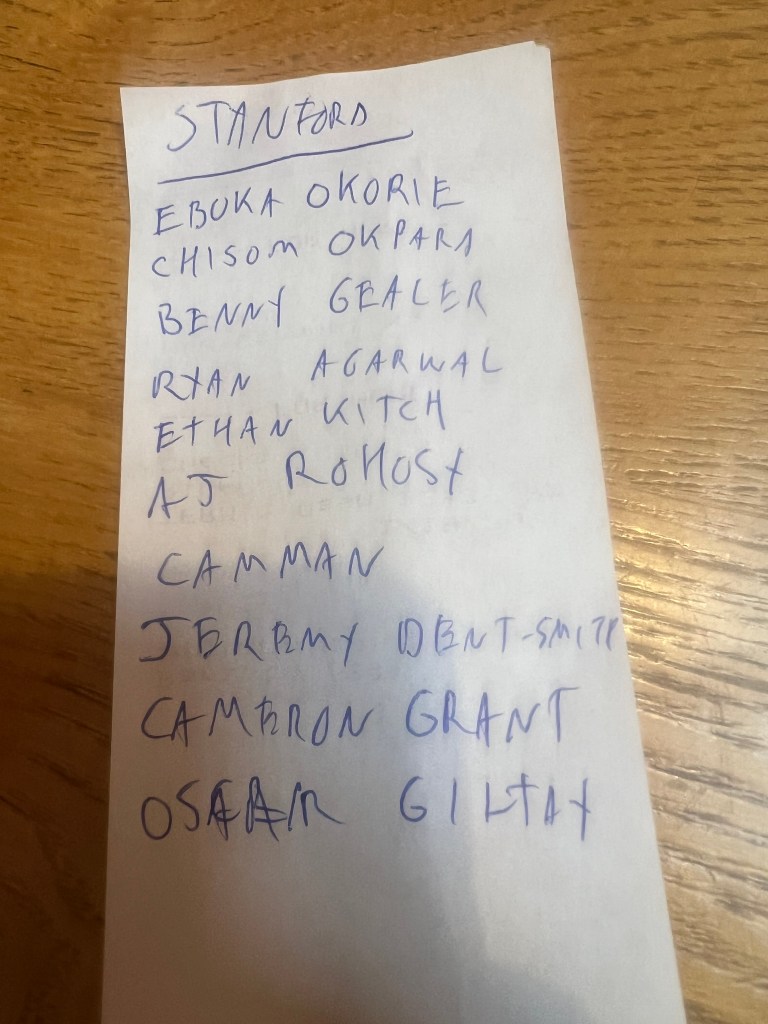 STANFORD
EBUKA OKORIE
CHISOM OKPARA
BENNY GEALER
RYAN AGARWAL
ETHAN KITCH
AJ ROHOSY
CAMMAN
JEREMY DENT-SMITH
CAMERON GRANT
GILTAY